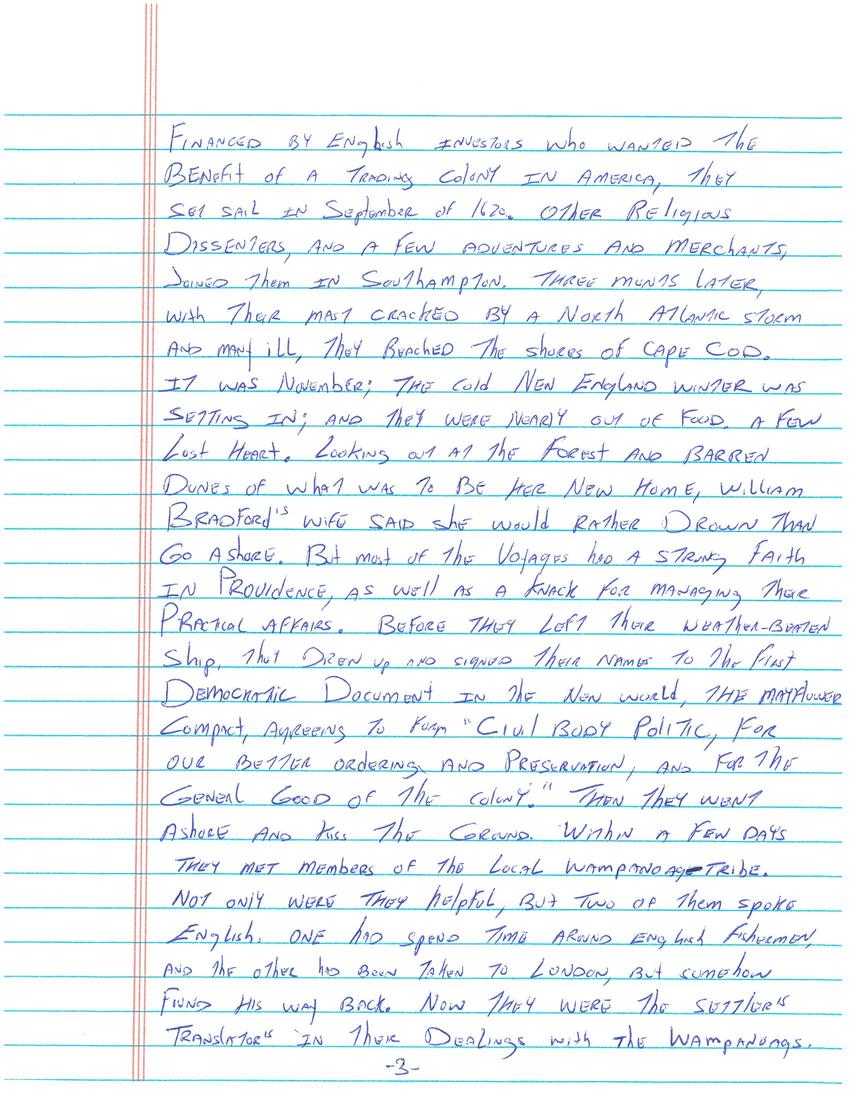 FINANCED BY English INVESTORS who WANTED The
BENEfit of A TRADING Colony IN AMERICA, THEY
SET SAIL IN September of 1620. OTHER RELIgious
DISSENTERS, AND A FEW ADVENTURES AND MERChANTS,
JOINED Them IN SouThampTON. THREE MUNTS LATER,
with Their MAST CRACKED BY A NORTh ATLANTIC STORM
AND MANY ill, They REACHED The shores of CAPE COD.
IT WAS NovEMBER; THE Cold NEW ENGLAND WINTER WAS
SETTING IN; AND They WERE NEARLY OUT OF FOOD. A FEW
Lost HEART. Looking OUT AT The FOREST AND BARREN
DUNES of WHAT WAS TO BE HER NEW HOME, WILLIAM
BRADFORd's WIFE SAID She would RATHER DROWN THAN
GO AShORE. But most of The Voyages hAD A STRONG FAITh
IN PROVIdENCE, AS well AS A KNACK FOR MANAgINg Their
PRACTICAL AFFAIRS. BEFORE THEY LEFT Their WEATHER-BEATEN
Ship, They DREW up AND SIGNED Their NAMES TO The First
DEMOCRATIC DOCUMENT IN The NEW WORLD, THE MAYFLOWER
Compact, AgREEING TO Form "CIVIL BODY POLITIC, FOR
OUR BETTER ORDERING AND PRESERVATION, AND FOR THE
GENERAL GOOD OF The COLONY." THEN THEY WENT
AShORE AND Kiss The GROUND. WITHIN A FEW DAYS
THEY MET MEMBERS of The LOCAL WAMPANOAG TRIBE.
NOT ONLY WERE THEY hElpful, BUT TWO OF Them spoke
English. ONE hAD spEND TIME AROUND English FishERMEN,
AND The OTHER hAD BEEN TAKEN TO LONDON, BUT SOMEHOW
FIUND HIS WAY BACK. NOW THEY WERE THE SETTLER'S
TRANSLATOR'S IN Their DEALINgs with THE WAMPANOAGS.
-3-